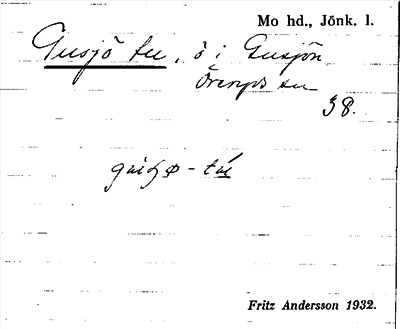 Mo hd., Jönk. l.
Gusjö tu, ö i Gusjön
Öreryds sn
38.
Fritz Andersson 1932.